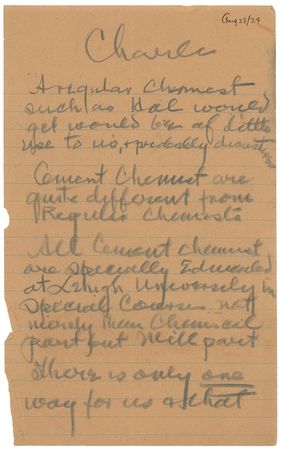 Aug 28/29
Charles
A regular Chemest
such as Hal would
get would be of little
use to us, & probably disastrous
Cement Chemist are
quite different from
Regular Chemists
All Cement chemist
are specially Educated
at Lehigh University in
special Course not
merely then Chemical
part but Mill part
There is only one
way for us & that